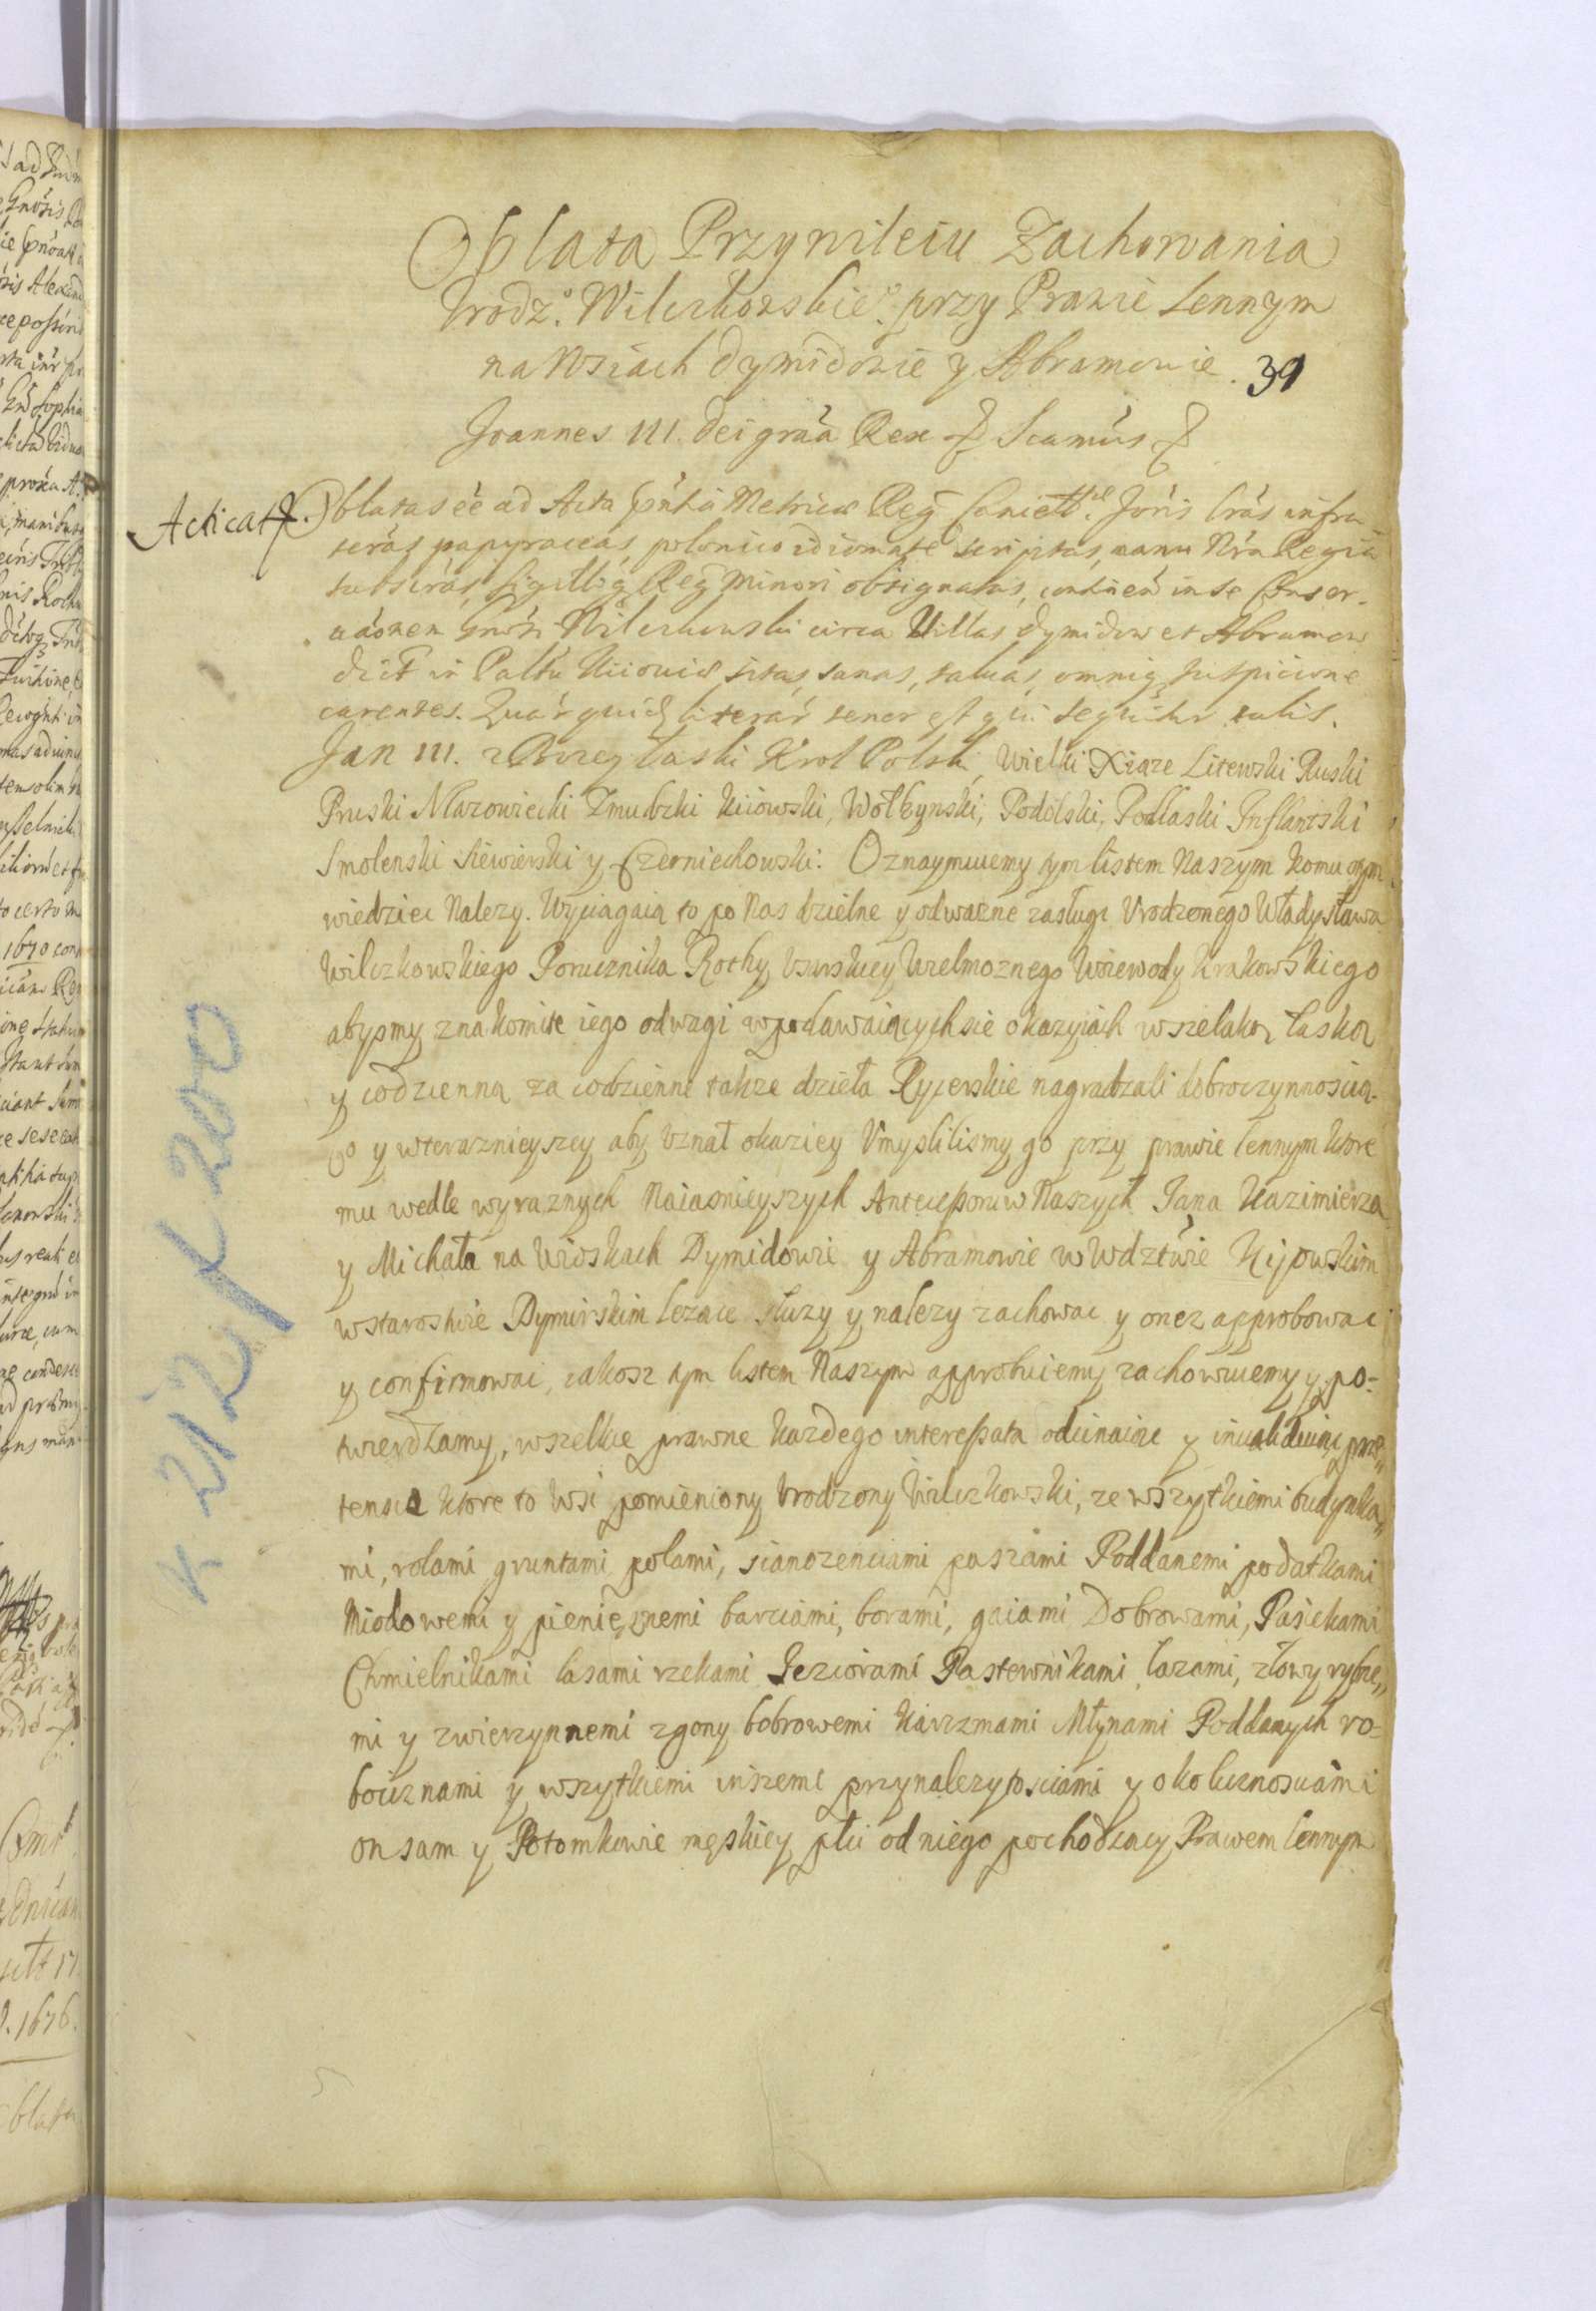 Oblata Przywileiu Zachowania
Urodz.° Wilczkowskie.° przy Prawie Lennym
na Wsiach Dymidowie y Abramowie.
39
Joannes III. Dei grãa Rex Scamús
Acticat
Oblatas eé ad Acta pñtia Metrices Reg Juris lrás infra
scrás papyraceas polonico idiomate scriptas, manu Nrá Regia
subscrás, Sigillog Reg Minori obsignatas, contineñ in se Conser-
uáonem Gnósi Wilczkowski circa Villas Dymidow et Abramow
dict in Palttu Kiiovieñ sitas, sanas, saluas, omnig suspicione
carentes. Quár quid literar tenor est qui sequitur talis.
Jan III. z Bozey Łaski Krol Polski, Wielki Xiąze Litewski Ruski
Pruski Mazowiecki Zmudzki Kiiowski, Wołhynski, Podolski, Podlaski Inflantski
Smolenski Siewierski y Czerniechowski. Oznaymuiemy tym listem Naszym komu o tym
wiedziec Nalezy. Wyciągaią to po Nas dzielne y odwazne zasługi Vrodzonego Władysława
Wilczkowskiego Porucznika Rothy Vsarskiey Wielmoznego Woiewody Krakowskiego
abysmy znakomite iego odwagi w podawaiących sie okazyiach wszelaką łaską
y codzienną za codzienne takze dzieła Rycerskie nagradzali dobroczynnoscią.
Co y wterazniejszey aby Vznał okaziey Vmyslilismy go przy prawie lennym ktore
mu wedle wyraznych Naiasnieyszych Antecessorow Naszych Jana Kazimierza
y Michała na Wioskach Dymidowie y Abramowie w Wdztwie Kijowskim
w starostwie Dymirskim lezące słuzy y nalezy zachowac y onez approbowac
y confirmowac, iakosz tym listem Naszym approbuiemy zachowuiemy y po-
twierdzamy, wszelkie prawne kazdego interessata odcinaiąc y inualiduiąc prae„
tensie ktore to Wsi pomieniony Vrodzony Wilczkowski, ze wszytkiemi budynka„
mi, rolami gruntami polami, sianozenciami paszami Poddanemi podatkami
Miodowemi y pieniężnemi barciami, borami, gaiami Dobrowami, Pasiekami
Chmielnikami lasami rzekami Jeziorami Pastewnikami, łazami, złowy rybne„
mi y zwierzynnemi zgony bobrowemi Karczmami Młynami Poddanych ro-
bociznami y wszytkiemi inszemi przynalezytosciami y okolicznosciami
on sam y Potomkowie męskiey płci od niego pochodzący Prawem lennym